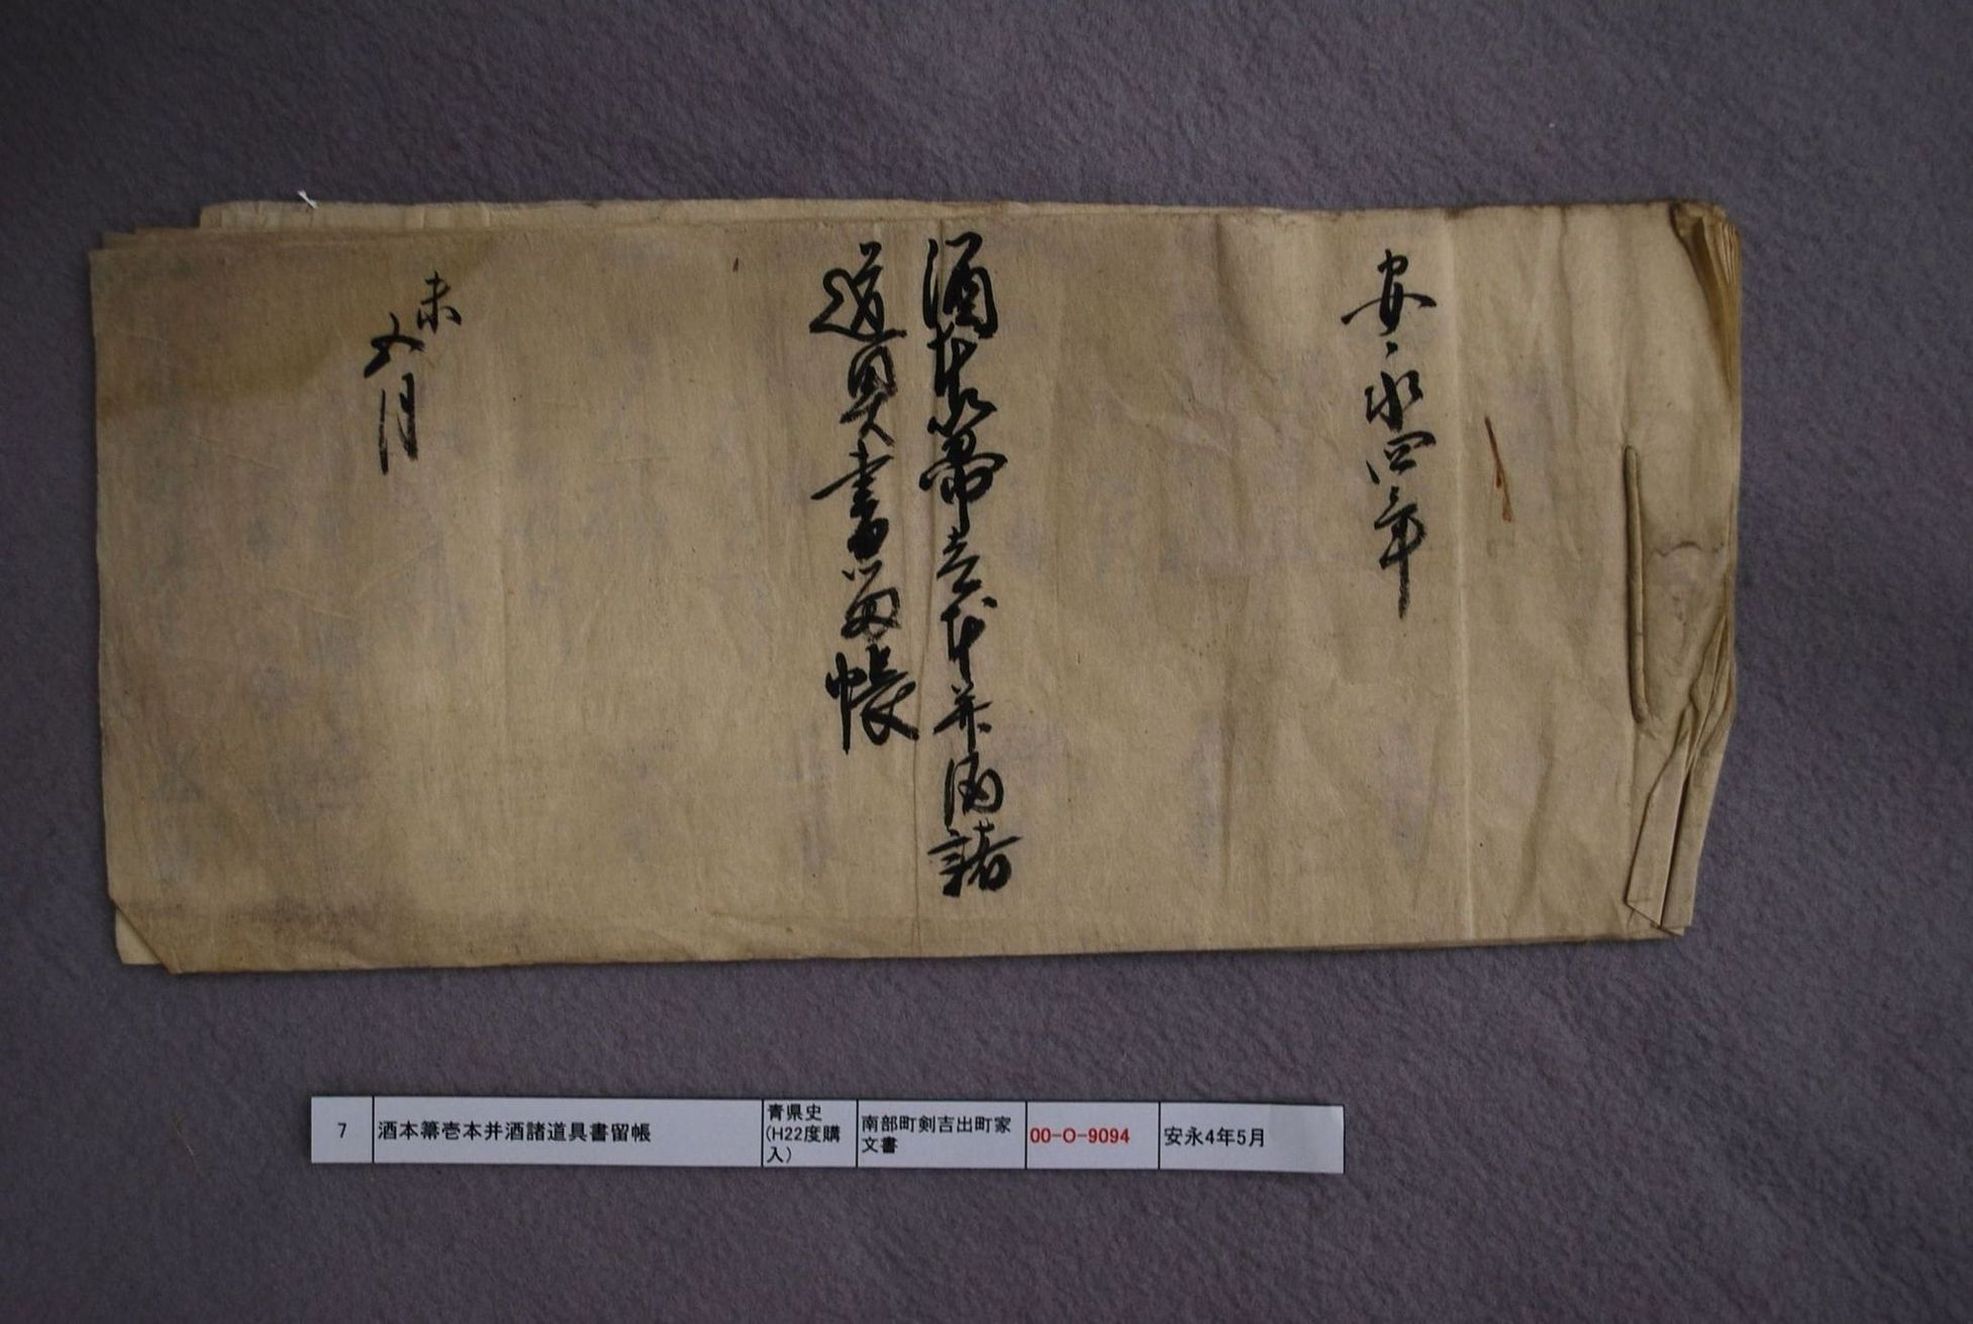 安永四年
酒本箒壱本并酒諸
道具書留帳
未
五月
7
酒本箒壱本并酒諸道具書留帳
青県史
(H22度購
入)
南部町剣吉出町家
文書
00-O-9094
安永4年5月